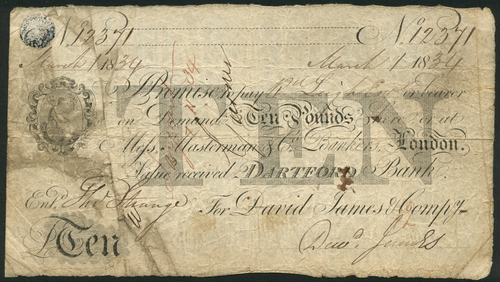 No. 12371 No. 12371
March 1 1834 March 1 1834
I Promise to pay or bearer
on Demand Ten Pounds here or at
Messrs. Masterman & Co. Bankers, London.
Value received DARTFORD Bank.
TEN
Entd. Thos. Strange For David James & Compy
£Ten David James